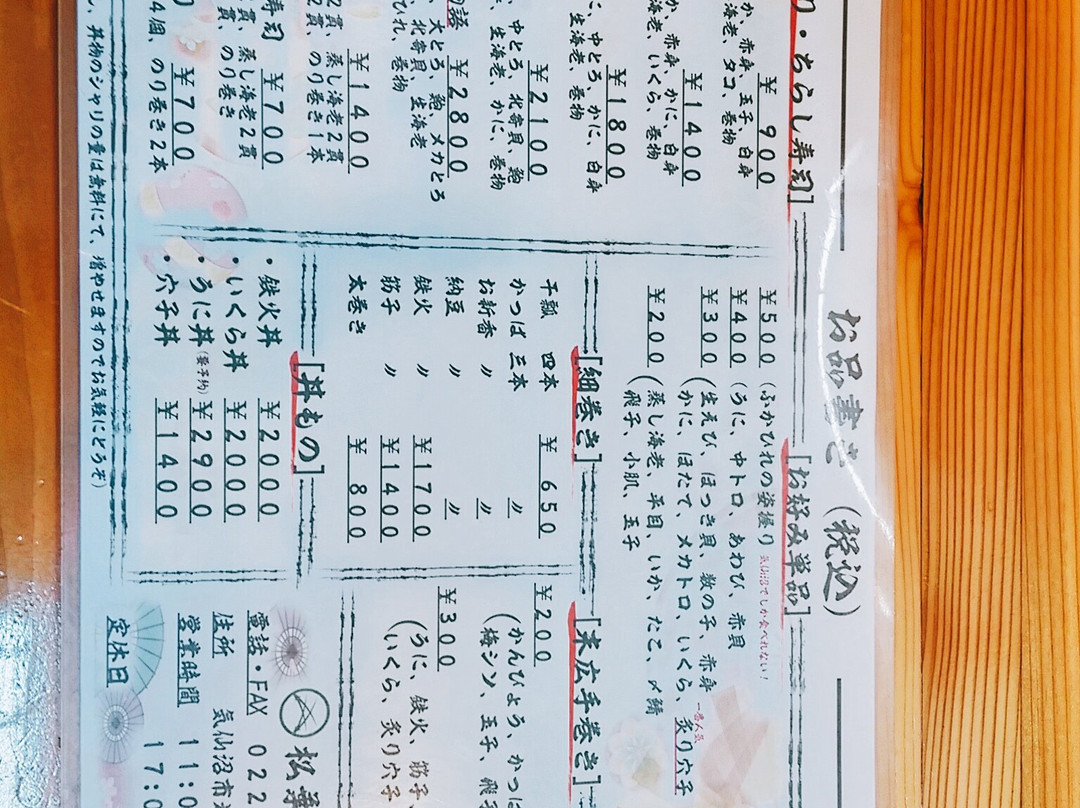 お品書き (税込)
・ちらし寿司]
¥ 900
か、赤身、玉子、白身
海老、タコ、巻物
¥1400
か、赤身、かに、白身
海老、いくら、巻物
¥1800
こ、中とろ、かに、白身
生海老、巻物
¥2100
、中とろ、北寄貝、鮑
、生海老、かに、巻物
¥2800
、大とろ、鮑、メカとろ
、北寄貝、生海老
ひれ、巻物
¥1400
2貫、蒸し海老2貫
2貫、のり巻き1本
寿司 ¥700
貫、蒸し海老2貫
貫、のり巻き
¥700
4個、のり巻き2本
丼物のシャリの量は無料にて、増やせますのでお気軽にどうぞ)
[お好み単品]
¥500 (ふかひれの姿握り 気仙沼でしか食べれない!
¥400 (うに、中トロ、あわび、赤貝
¥300 (生えび、ほっき貝、数の子、赤身
かに、ほたて、メカトロ、いくら、炙り穴子
一番人気
¥200 (蒸し海老、平目、いか、たこ、〆鯖
飛子、小肌、玉子
[細巻き]
干瓢 四本 ¥ 650
かっぱ 三本 〃
お新香 〃 〃
納豆 〃 〃
鉄火 〃 ¥1700
筋子 〃 ¥1400
太巻き ¥ 800
[丼もの]
・鉄火丼 ¥2000
・いくら丼 ¥2000
・うに丼(要予約) ¥2900
・穴子丼 ¥1400
[末広手巻き]
¥200 (かんぴょう、かっぱ
梅シソ、玉子、飛子
¥300 (うに、鉄火、筋子
いくら、炙り穴子
松
電話・FAX 022
住所 気仙沼市
営業時間 11:0
17:0
定休日